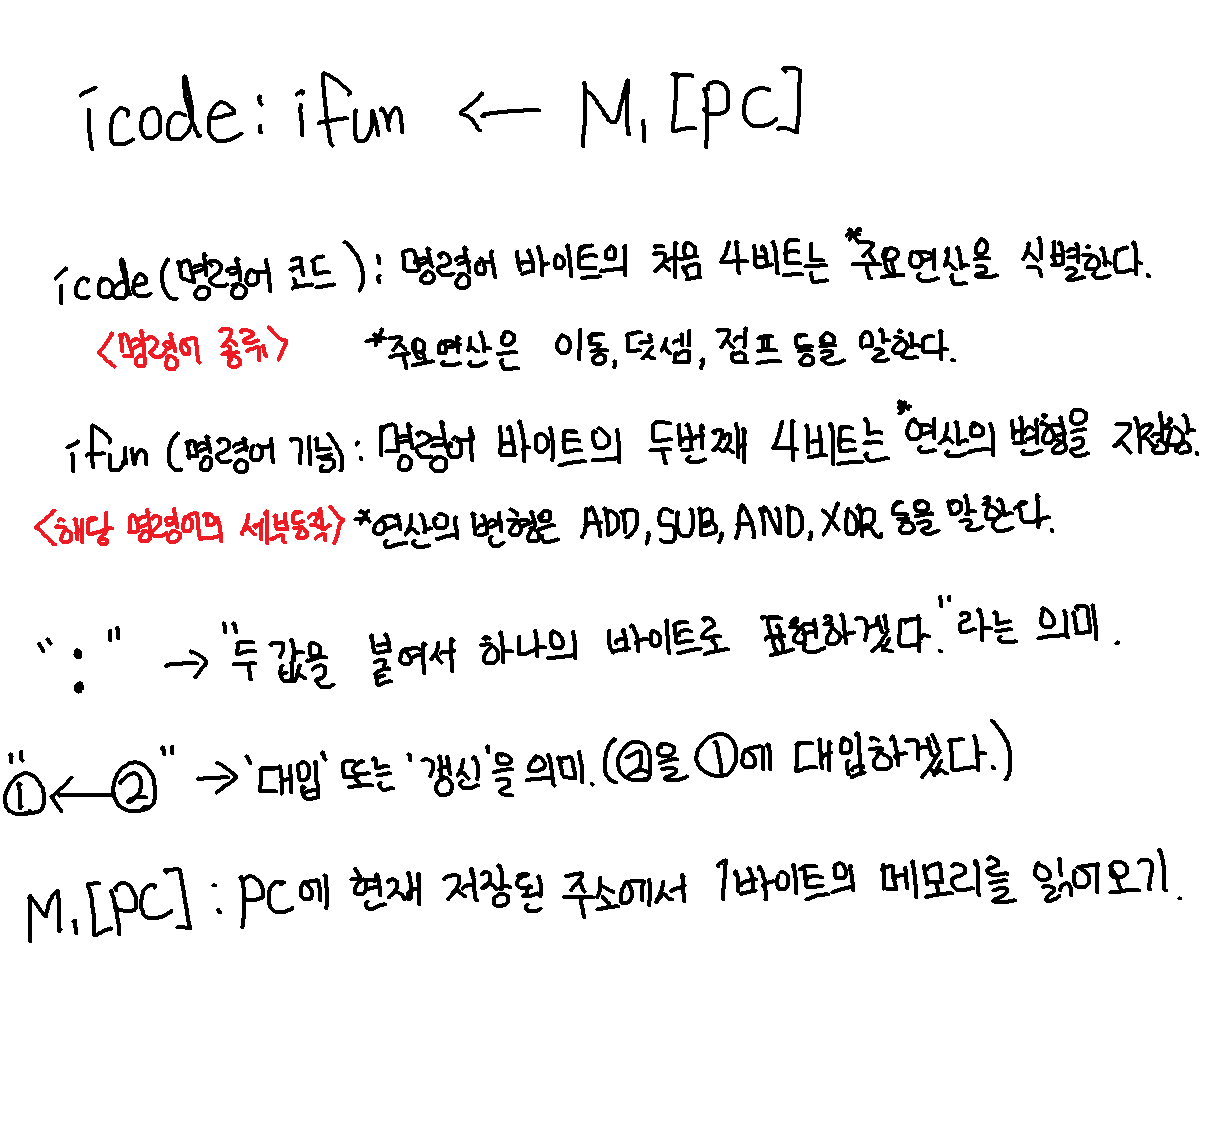 icode : ifun ← M₁[PC]
icode(명령어 코드) : 명령어 바이트의 처음 4비트는 *주요연산을 식별한다.
<명령어 종류> *주요연산은 이동, 덧셈, 점프 등을 말한다.
ifun (명령어 기능) : 명령어 바이트의 두번째 4비트는 *연산의 변형을 지정함.
<해당 명령어의 세부동작> *연산의 변형은 ADD, SUB, AND, XOR 등을 말한다.
" : " → "두 값을 붙여서 하나의 바이트로 표현하겠다." 라는 의미.
"①←②" → '대입' 또는 '갱신'을 의미. (②을 ①에 대입하겠다.)
M₁[PC] : PC에 현재 저장된 주소에서 1바이트의 메모리를 읽어오기.